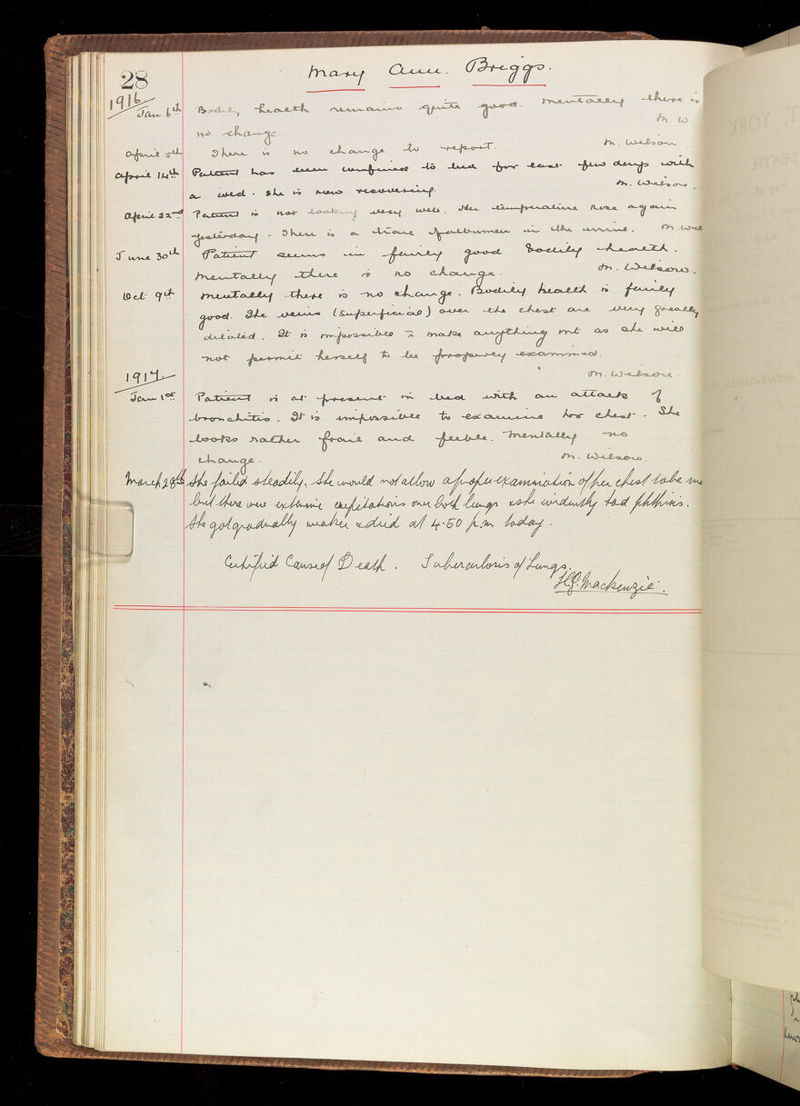 28
Mary Ann. Briggs.
1916
Jan 6th Bodily health remains quite good. Mentally there is
no change M. W.
April 5th There is no change to report. M. Wilson
April 14th Patient has been confined to bed for last few days with
a cold. She is now recovering. M. Wilson.
April 22nd Patient is not looking very well. Her temperature rose again
yesterday. There is a trace of albumen in the urine. M. Wilson
June 30th Patient seems in fairly good bodily health.
Mentally there is no change. M. Wilson.
Oct 9th Mentally there is no change. Bodily health is fairly
good. The veins (superficial) over the chest are very greatly
dilated. It is impossible to make anything out as she will
not permit herself to be properly examined.
M. Wilson.
1917
Jan 1st Patient is at present in bed with an attack of
bronchitis. It is impossible to examine her chest. She
looks rather frail and feeble. Mentally no
change. M. Wilson.
March 28th She failed steadily. She would not allow a proper examination of her chest to be
but there were extensive crepitations over both lungs & she evidently had phthisis.
She got gradually weaker & died at 4.50 p.m. today.
Certified Cause of Death. Tuberculosis of Lungs.
H.J. Mackenzie.
YORK
DEATH